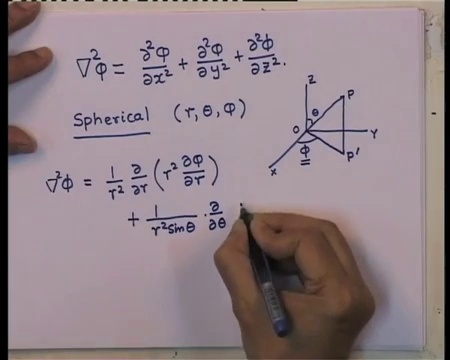 ∇²Φ = ∂²Φ/∂x² + ∂²Φ/∂y² + ∂²Φ/∂z².
Spherical (r, θ, φ)
Z
P
θ
O
Y
φ
P'
X
∇²Φ = 1/r² ∂/∂r (r² ∂Φ/∂r)
+ 1/r² sinθ · ∂/∂θ